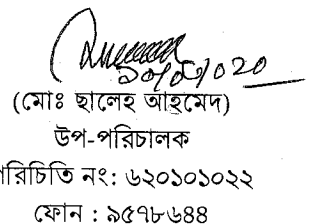 (মোঃ ছালেহ আহমেদ)
উপ-পরিচালক
পরিচিতি নং: ৬২০১০১০২২
ফোন : ৯৫৭৮৬৪৪